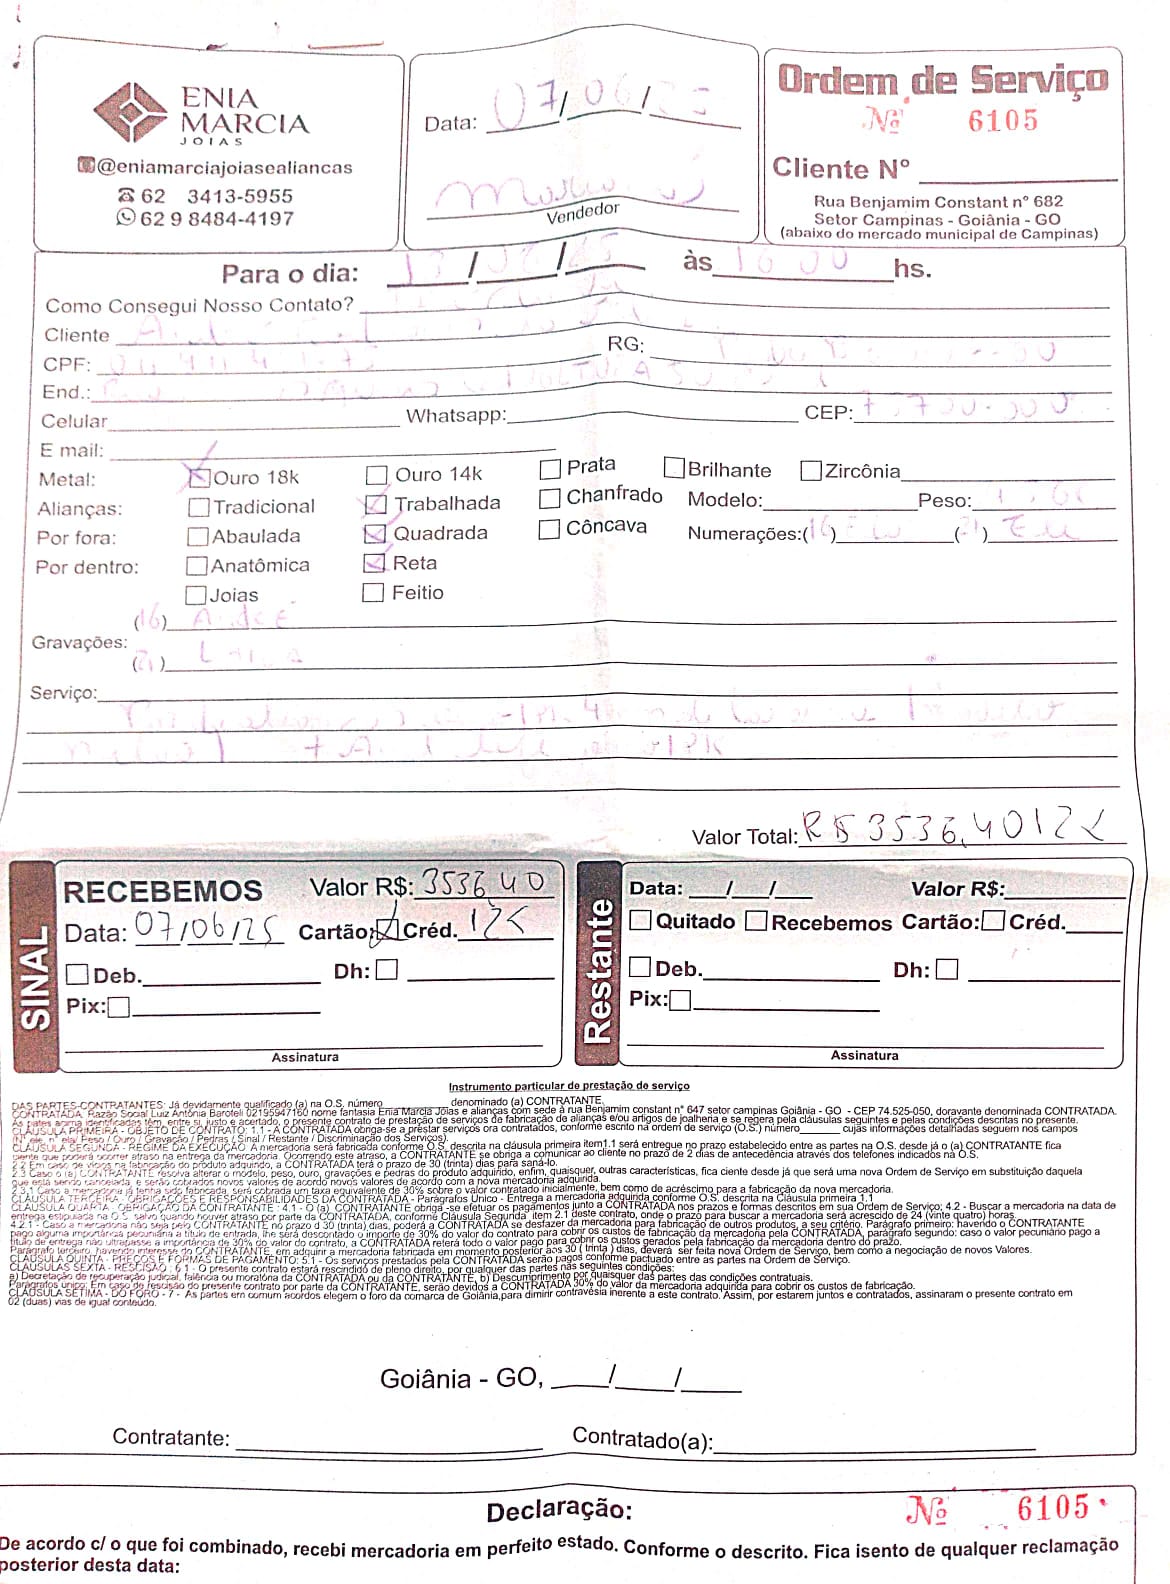 ENIA
MARCIA
JOIAS
@eniamarciajoiasealiancas
62 3413-5955
62 9 8484-4197
Data: 07/06/
Vendedor
Ordem de Serviço
Nº 6105
Cliente Nº
Rua Benjamim Constant n° 682
Setor Campinas - Goiânia - GO
(abaixo do mercado municipal de Campinas)
Para o dia: / / às hs.
Como Consegui Nosso Contato?
Cliente
CPF: RG:
End.:
Celular Whatsapp: CEP:
E mail:
Metal: Ouro 18k Ouro 14k Prata Brilhante Zircônia
Alianças: Tradicional Trabalhada Chanfrado Modelo: Peso:
Por fora: Abaulada Quadrada Côncava Numerações:(16) ( )
Por dentro: Anatômica Reta
Joias Feitio
(16) André
Gravações:
(21)
Serviço:
Valor Total: R$ 3536,40 12X
SINAL
RECEBEMOS Valor R$: 3536,40
Data: 07/06/25 Cartão: Créd. 12X
Deb. Dh:
Pix:
Assinatura
Restante
Data: / / Valor R$:
Quitado Recebemos Cartão: Créd.
Deb. Dh:
Pix:
Assinatura
Instrumento particular de prestação do serviço
DAS PARTES-CONTRATANTES: Já devidamente qualificado (a) na O.S. número denominado (a) CONTRATANTE,
CONTRATADA, Razão Social Luiz Antônia Baroteli 02195947160 nome fantasia Enia Marcia Joias e alianças com sede à rua Benjamim constant n° 647 setor campinas Goiânia - GO - CEP 74.525-050, doravante denominada CONTRATADA.
As partes acima identificadas têm, entre si, justo e acertado, o presente contrato de prestação de serviços de fabricação de alianças e/ou artigos de joalheria e se regera pela cláusulas seguintes e pelas condições descritas no presente.
CLÁUSULA PRIMEIRA - OBJETO DE CONTRATO: 1.1 - A CONTRATADA obriga-se a prestar serviços ora contratados, conforme escrito na ordem de serviço (O.S.) número cujas informações detalhadas seguem nos campos
(N° ele, n° ela/ Peso / Ouro / Gravação / Pedras / Sinal / Restante / Discriminação dos Serviços).
CLÁUSULA SEGUNDA - REGIME DA EXECUÇÃO: A mercadoria será fabricada conforme O.S. descrita na cláusula primeira item1.1 será entregue no prazo estabelecido entre as partes na O.S. desde já o (a) CONTRATANTE fica
ciente que poderá ocorrer atraso na entrega da mercadoria. Ocorrendo este atraso, a CONTRATANTE se obriga a comunicar ao cliente no prazo de 2 dias de antecedência através dos telefones indicados na O.S.
2.2 Em caso de vícios na fabricação do produto adquirido, a CONTRATADA terá o prazo de 30 (trinta) dias para saná-lo.
2.3 Caso o (a) CONTRATANTE resolva alterar o modelo, peso, ouro, gravações e pedras do produto adquirido, enfim, quaisquer, outras características, fica ciente desde já que será uma nova Ordem de Serviço em substituição daquela
que está sendo cancelada, e serão cobrados novos valores de acordo novos valores de acordo com a nova mercadoria adquirida.
2.3.1 Caso a mercadoria já tenha sido fabricada, será cobrada um taxa equivalente de 30% sobre o valor contratado inicialmente, bem como de acréscimo para a fabricação da nova mercadoria.
CLÁUSULA TERCEIRA - OBRIGAÇÕES E RESPONSABILIDADES DA CONTRATADA - Parágrafos Único - Entrega a mercadoria adquirida conforme O.S. descrita na Cláusula primeira 1.1
CLÁUSULA QUARTA - OBRIGAÇÃO DA CONTRATANTE : 4.1 - O (a) CONTRATANTE obriga -se efetuar os pagamentos junto a CONTRATADA nos prazos e formas descritos em sua Ordem de Serviço; 4.2 - Buscar a mercadoria na data de
entrega estipulada na O.S. salvo quando houver atraso por parte da CONTRATADA, conforme Cláusula Segunda item 2.1 deste contrato, onde o prazo para buscar a mercadoria será acrescido de 24 (vinte quatro) horas.
4.2.1 - Caso a mercadoria não seja pelo CONTRATANTE no prazo d 30 (trinta) dias, poderá a CONTRATADA se desfazer da mercadoria para fabricação de outros produtos, a seu critério. Parágrafo primeiro: havendo o CONTRATANTE
pago alguma importância pecuniária a título de entrada, lhe será descontado o importe de 30% do valor do contrato para cobrir os custos de fabricação da mercadoria pela CONTRATADA, parágrafo segundo: caso o valor pecuniário pago a
título de entrega não ultrapasse a importância de 30% do valor do contrato, a CONTRATADA reterá todo o valor pago para cobrir os custos gerados pela fabricação da mercadoria dentro do prazo.
Parágrafo terceiro, havendo interesse do CONTRATANTE, em adquirir a mercadoria fabricada em momento posterior aos 30 ( trinta ) dias, deverá ser feita nova Ordem de Serviço, bem como a negociação de novos Valores.
CLÁUSULA QUINTA - PREÇOS E FORMAS DE PAGAMENTO: 5.1 - Os serviços prestados pela CONTRATADA serão pagos conforme pactuado entre as partes na Ordem de Serviço.
CLÁUSULAS SEXTA - RESCISÃO : 6.1 - O presente contrato estará rescindido de pleno direito, por qualquer das partes nas seguintes condições:
a) Decretação de recuperação judicial, falência ou moratória da CONTRATADA ou da CONTRATANTE, b) Descumprimento por quaisquer das partes das condições contratuais.
Parágrafos único: Em caso de rescisão do presente contrato por parte da CONTRATANTE, serão devidos a CONTRATADA 30% do valor da mercadoria adquirida para cobrir os custos de fabricação.
CLÁUSULA SÉTIMA - DO FORO - 7 - As partes em comum acordos elegem o foro da comarca de Goiânia,para dimirir contravésia inerente a este contrato. Assim, por estarem juntos e contratados, assinaram o presente contrato em
02 (duas) vias de igual conteúdo.
Goiânia - GO, / /
Contratante: Contratado(a):
Declaração: Nº 6105
De acordo c/ o que foi combinado, recebi mercadoria em perfeito estado. Conforme o descrito. Fica isento de qualquer reclamação
posterior desta data: